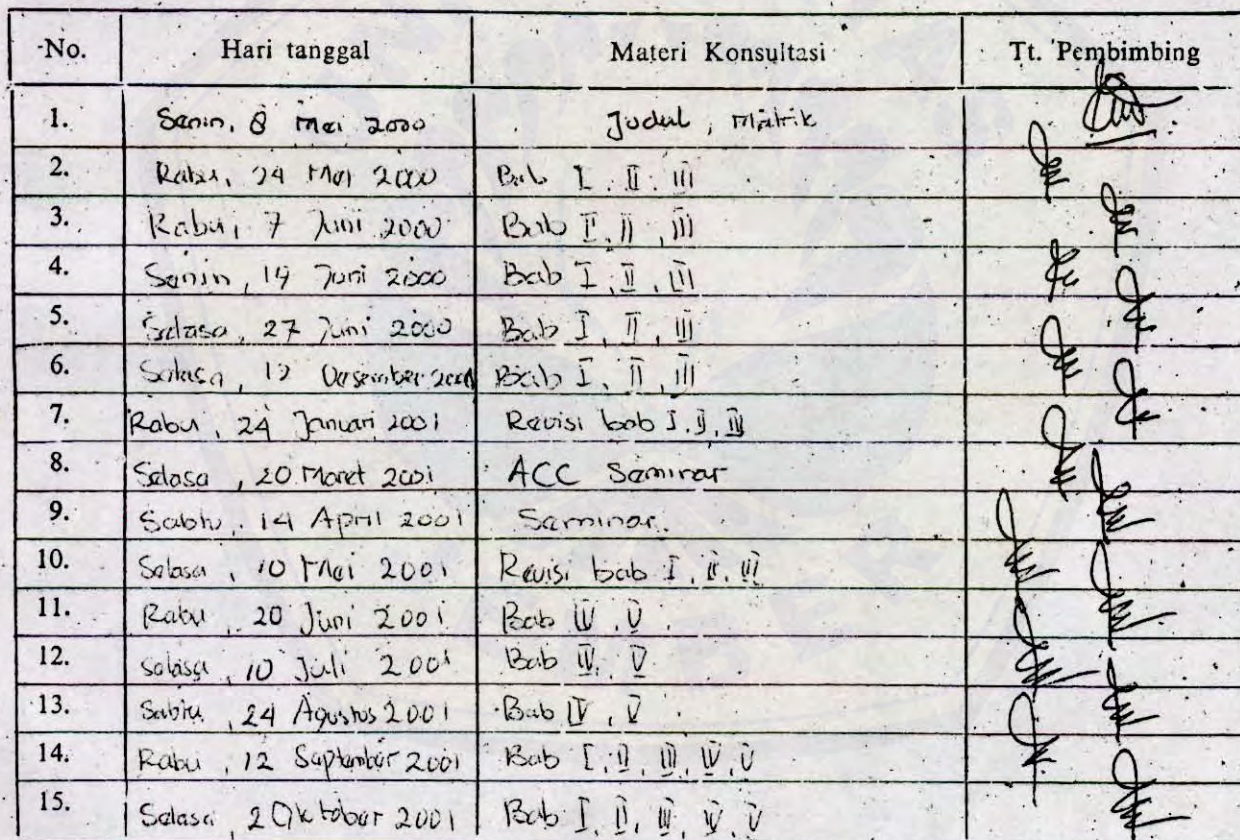 No. Hari tanggal Materi Konsultasi Tt. Pembimbing
1. Senin, 8 Mei 2000 Judul, Matrik
2. Rabu, 24 Mei 2000 Bab I, II, III
3. Rabu, 7 Juni 2000 Bab I, II, III
4. Senin, 14 Juni 2000 Bab I, II, III
5. Selasa, 27 Juni 2000 Bab I, II, III
6. Selasa, 12 Desember 2000 Bab I, II, III
7. Rabu, 24 Januari 2001 Revisi bab I, II, III
8. Selasa, 20 Maret 2001 ACC Seminar
9. Sabtu, 14 April 2001 Seminar.
10. Selasa, 10 Mei 2001 Revisi bab I, II, III
11. Rabu, 20 Juni 2001 Bab IV, V
12. Selasa, 10 Juli 2001 Bab IV, V
13. Sabtu, 24 Agustus 2001 Bab IV, V
14. Rabu, 12 September 2001 Bab I, II, III, IV, V
15. Selasa, 2 Oktober 2001 Bab I, II, III, IV, V